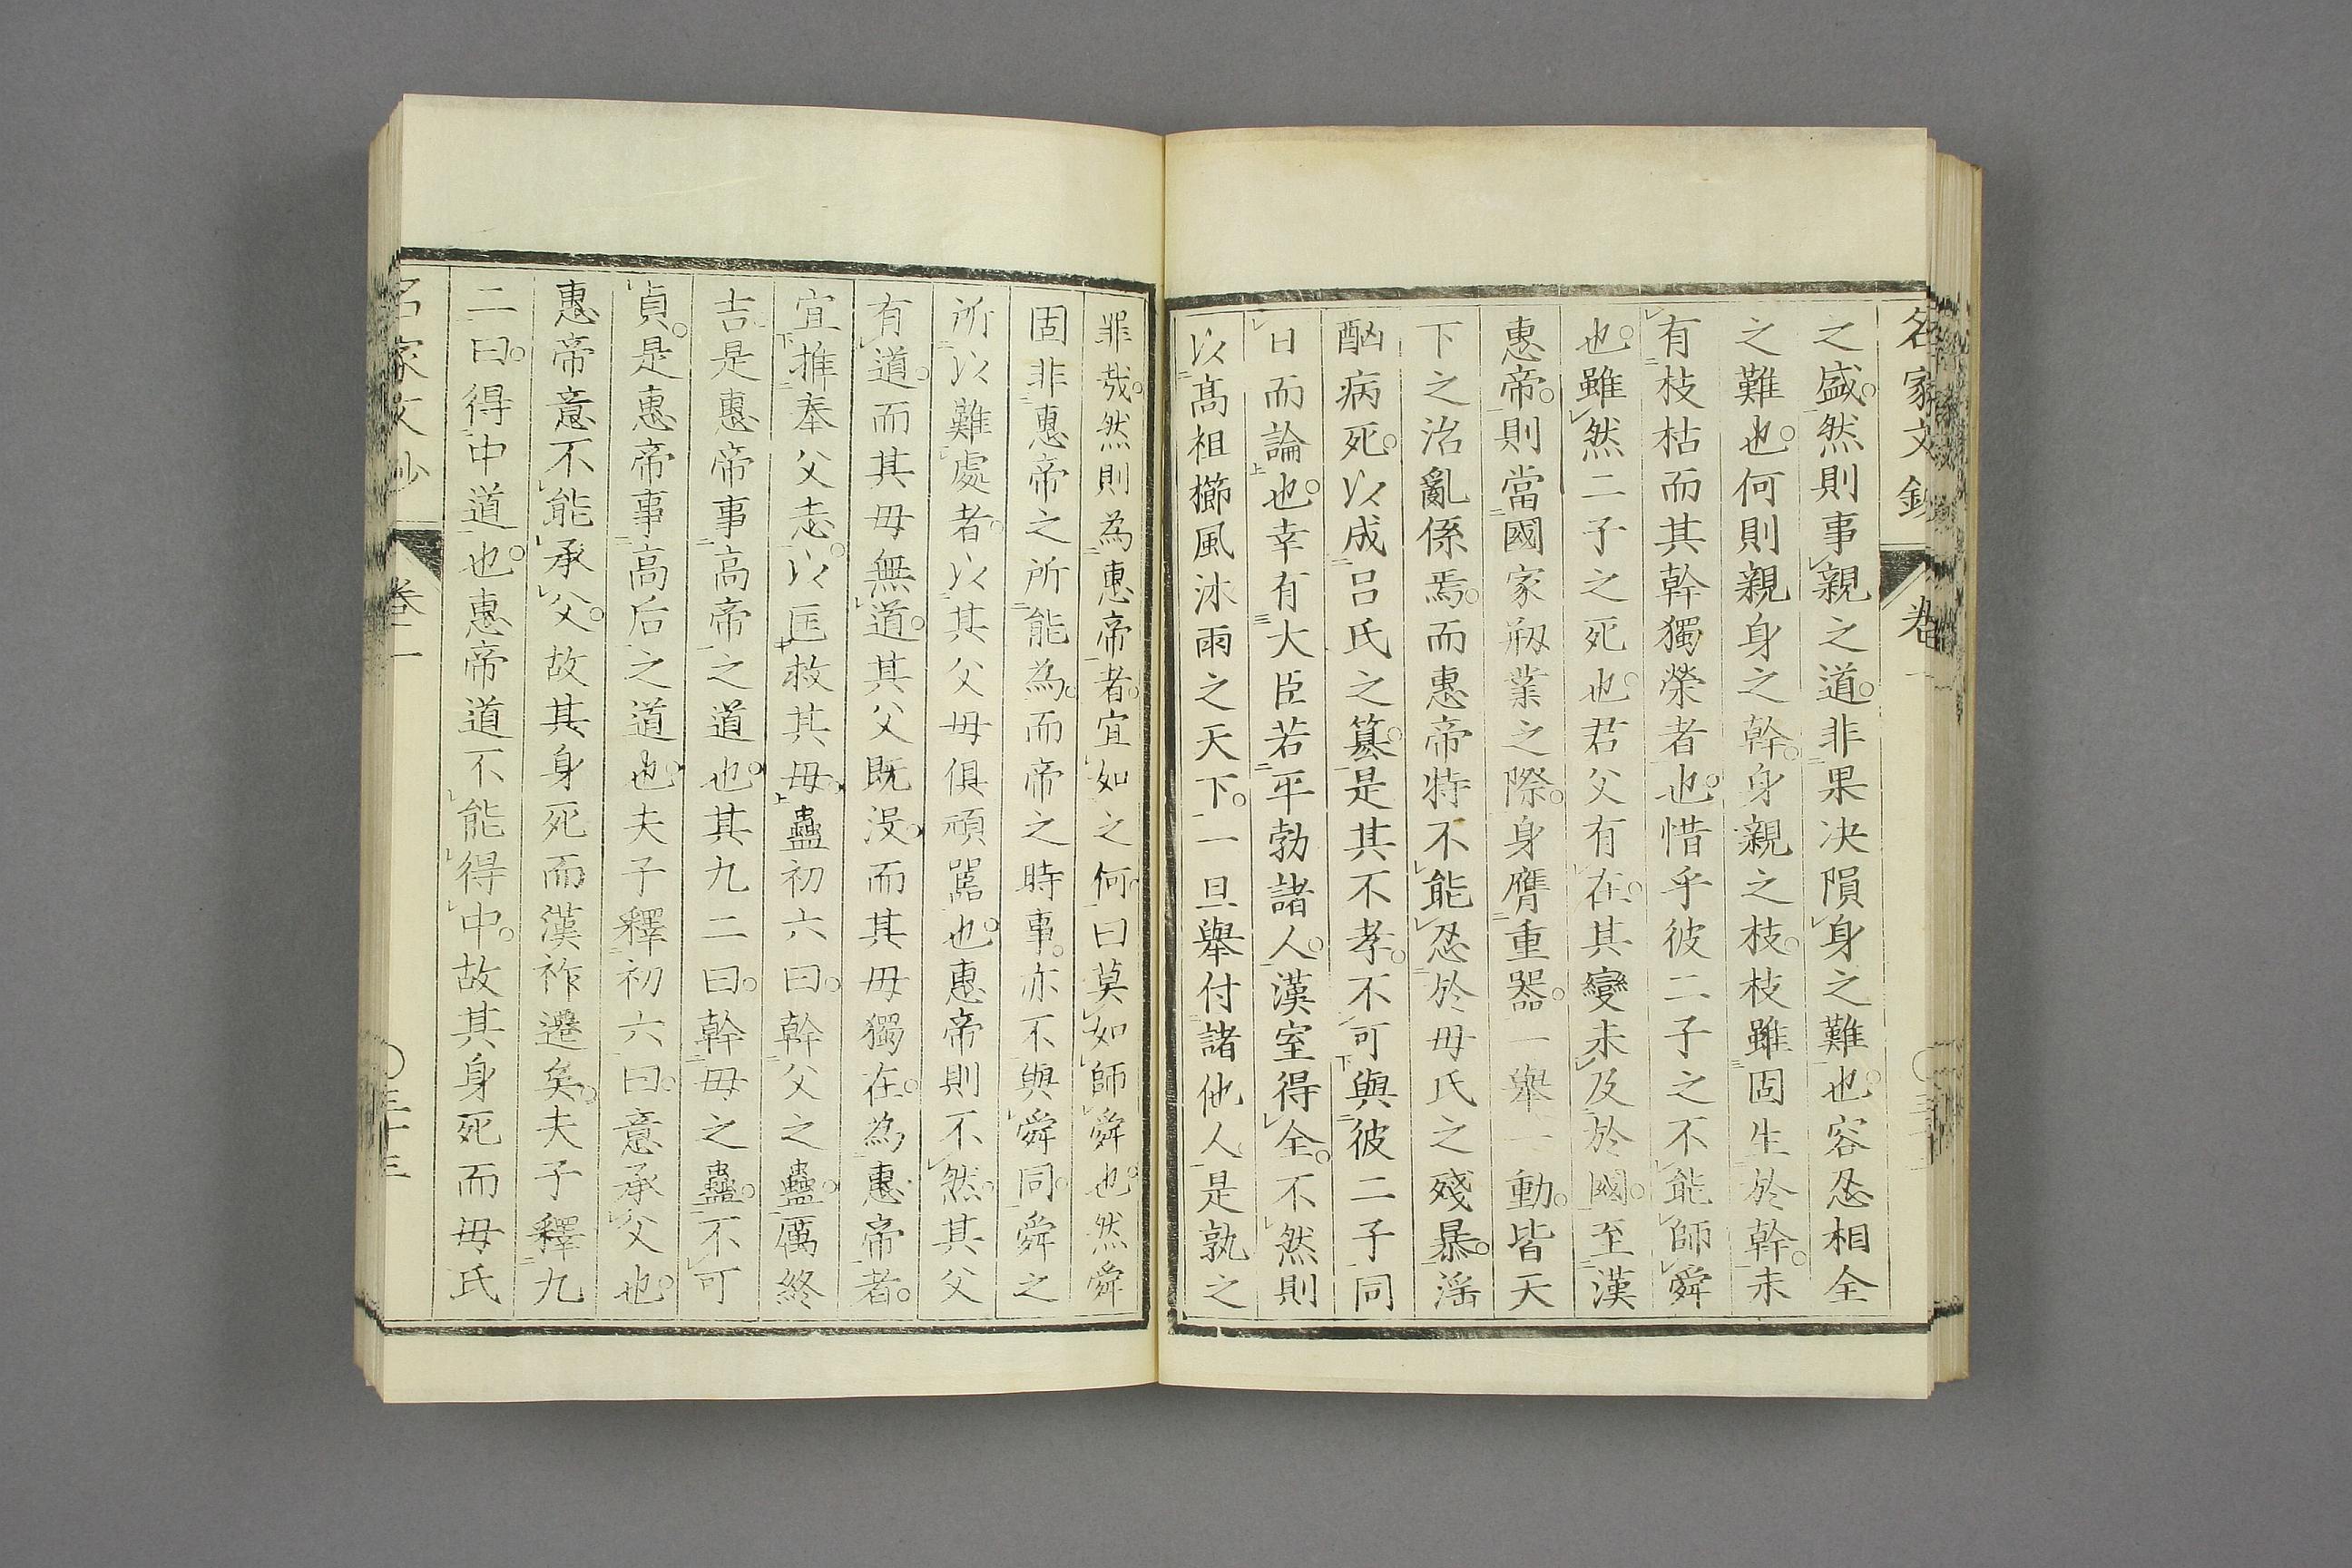 名家文鈔 卷一
之盛。然則事親之道。非果决隕身之難也。容忍相全
之難也。何則親身之幹。身親之枝。枝雖固生於幹。未
有枝枯而其幹獨榮者也。惜乎彼二子之不能師舜
也。雖然二子之死也。君父有在。其變未及於國。至漢
惠帝。則當國家剏業之際。身膺重器。一舉一動。皆天
下之治亂係焉。而惠帝特不能忍於母氏之殘暴。淫
酗病死。以成呂氏之簒。是其不孝。不可與彼二子同
日而論也。幸有大臣若平勃諸人。漢室得全。不然則
以髙祖櫛風沐雨之天下。一旦舉付諸他人。是孰之
罪哉。然則為惠帝者。宜如之何。曰莫如師舜也。然舜
固非惠帝之所能為。而帝之時事。亦不與舜同。舜之
所以難處者。以其父母俱頑嚚也。惠帝則不然。其父
有道。而其母無道。其父既没。而其母獨在。為惠帝者。
宜推奉父志。以匡救其母。蠱初六曰。幹父之蠱。厲終
吉是惠帝事高帝之道也。其九二曰。幹母之蠱。不可
貞。是惠帝事高后之道也。夫子釋初六曰。意承父也。
惠帝意不能承父。故其身死而漢祚遷矣。夫子釋九
二曰。得中道也。惠帝道不能得中。故其身死而母氏
名家文鈔 卷一 〇三十三